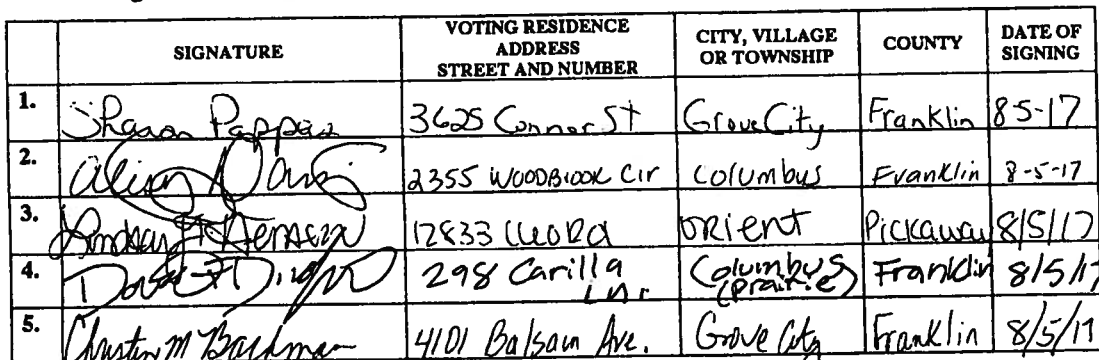 SIGNATURE VOTING RESIDENCE ADDRESS STREET AND NUMBER CITY, VILLAGE OR TOWNSHIP COUNTY DATE OF SIGNING
1. Sharon Pappas 3625 Connor St Grove City Franklin 8-5-17
2. 2355 WOODBROOK Cir Columbus Franklin 8-5-17
3. Lindsay 12833 Orient Pickaway 8/5/17
4. 298 Carilla Ln. Columbus (Prairie) Franklin 8/5/17
5. Christin M Bachman 4101 Balsam Ave. Grove City Franklin 8/5/17